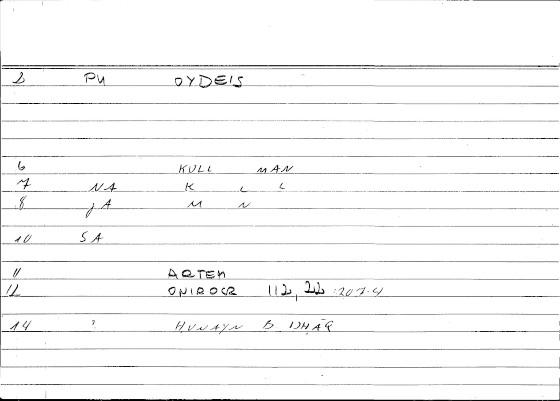 2 PU OYDEIS
6 KULL MAN
7 NA K L L
8 jA M N
10 SA
11 ARTEM
12 ONIROCR 112, 22 :207.4
14 ? HUNAYN B ISHĀQ